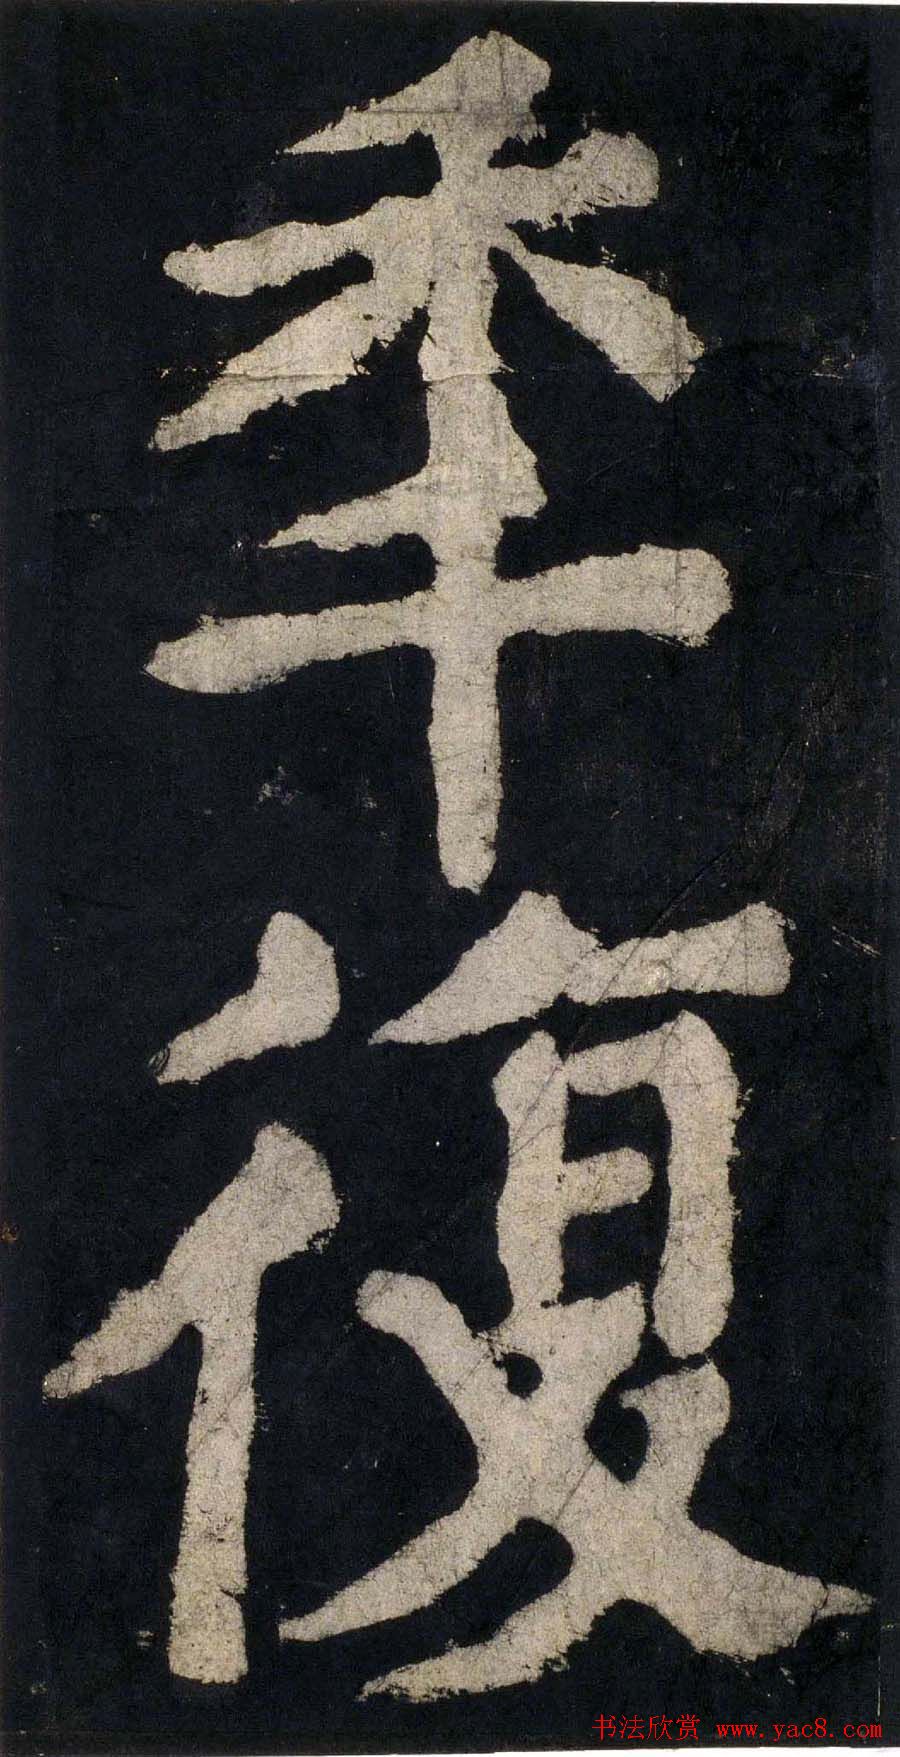 秊
復
书法欣赏 www.yac8.com